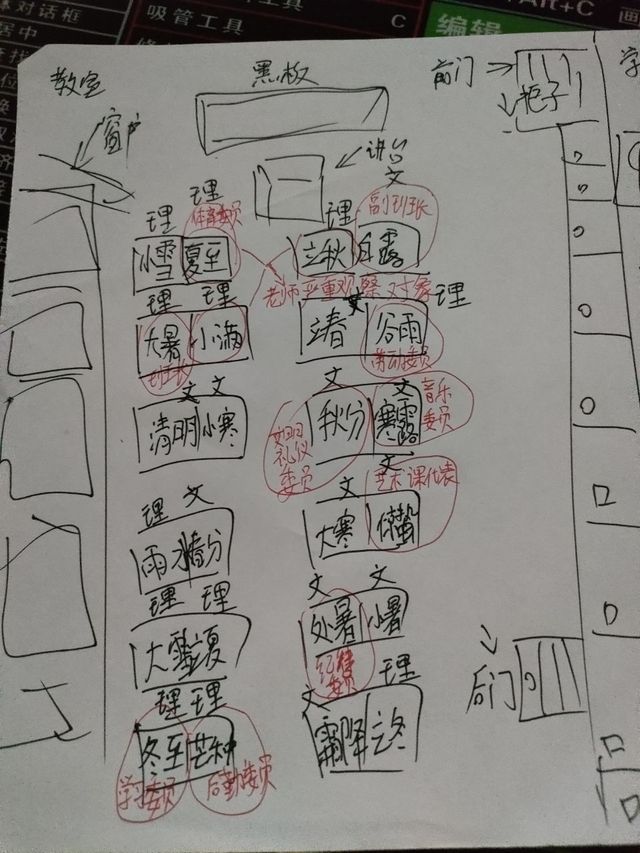 吸管工具
C
编辑
Alt+C
教室
黑板
前门
柜子
窗户
讲台
理 理 文
体育委员 理 副班长
小雪 夏至 立秋 白露
老师严重观察对象
理 理 理
大暑 小满 立春 谷雨
班长 劳动委员
文 文 文 文 音乐委员
清明 小寒 秋分 寒露
礼仪委员
理 文 文 文 艺术课代表
雨水 春分 大寒
理 理 文 文
大雪 立夏 处暑 小暑
纪律委员
理 理 文 理
冬至 芒种 霜降 立冬
学习委员 后勤委员
后门